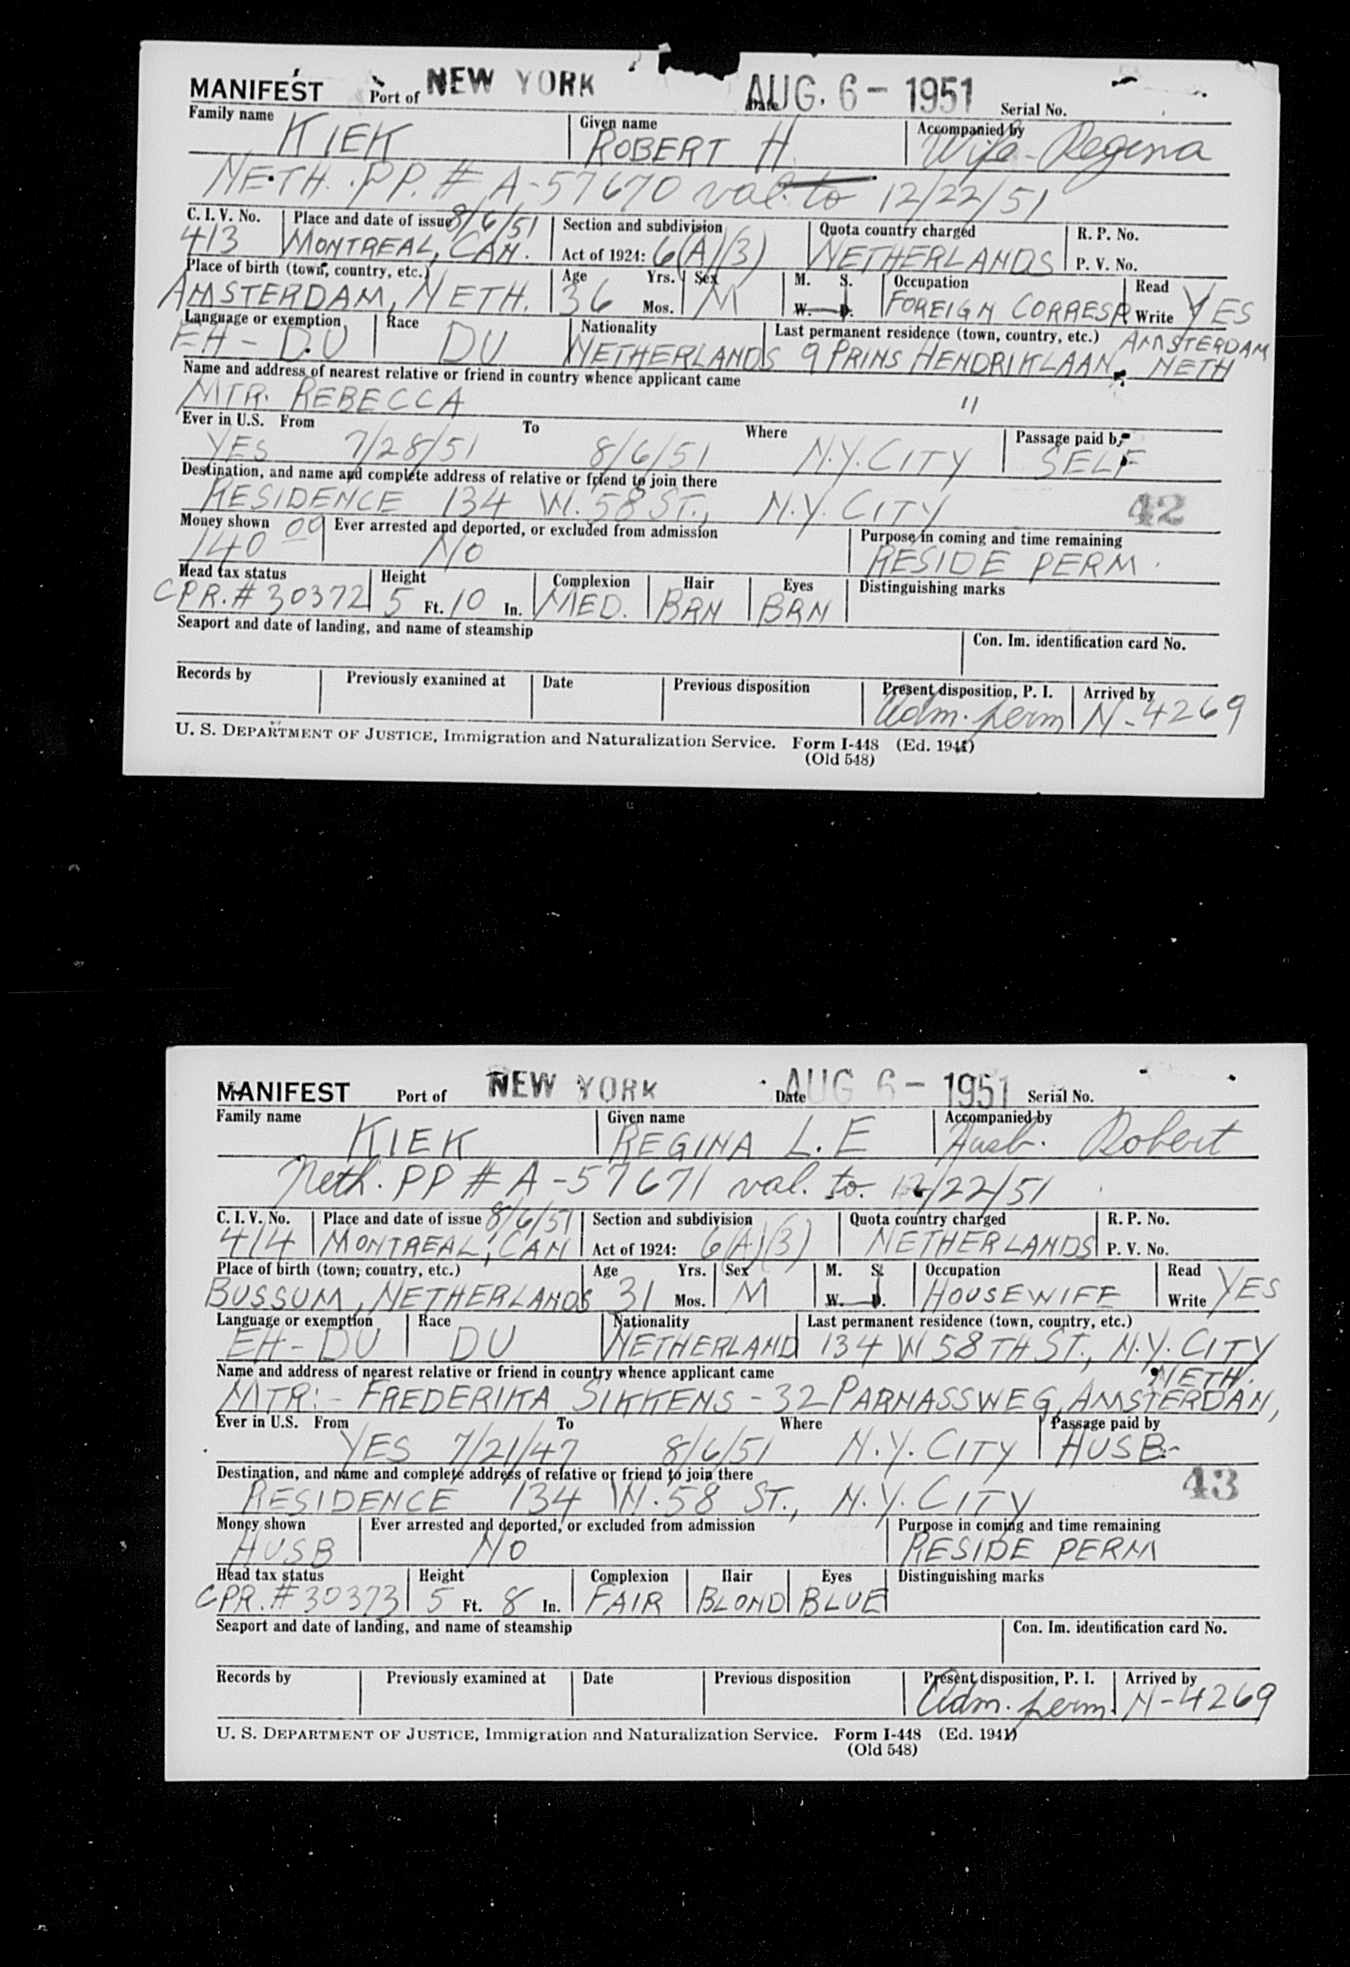 MANIFEST Port of NEW YORK Date AUG. 6 - 1951 Serial No.
Family name KIEK Given name ROBERT H. Accompanied by Wife - Regina
NETH. PP. # A-57670 val. to 12/22/51
C. I. V. No. 413 Place and date of issue 8/6/51 MONTREAL, CAN. Section and subdivision Act of 1924: 6(A)(3) Quota country charged NETHERLANDS R. P. No. P. V. No.
Place of birth (town, country, etc.) AMSTERDAM, NETH. Age 36 Yrs. Mos. Sex M M. S. W. D. Occupation FOREIGN CORRESP Read Write YES
Language or exemption EH - DU Race DU Nationality NETHERLANDS Last permanent residence (town, country, etc.) 9 PRINS HENDRIKLAAN, AMSTERDAM NETH
Name and address of nearest relative or friend in country whence applicant came
MTR. REBECCA "
Ever in U.S. YES From 7/28/51 To 8/6/51 Where N.Y. CITY Passage paid by SELF
Destination, and name and complete address of relative or friend to join there
RESIDENCE 134 W. 58 ST., N.Y. CITY 42
Money shown 140 00 Ever arrested and deported, or excluded from admission NO Purpose in coming and time remaining RESIDE PERM.
Head tax status CPR. # 30372 Height 5 Ft. 10 In. Complexion MED. Hair BRN Eyes BRN Distinguishing marks
Seaport and date of landing, and name of steamship Con. Im. identification card No.
Records by Previously examined at Date Previous disposition Present disposition, P. I. Adm. perm Arrived by N-4269
U. S. DEPARTMENT OF JUSTICE, Immigration and Naturalization Service. Form I-448 (Ed. 1941)
(Old 548)
MANIFEST Port of NEW YORK Date AUG 6 - 1951 Serial No.
Family name KIEK Given name REGINA L. E Accompanied by Husb. Robert
Neth. PP # A-57671 val. to. 12/22/51
C. I. V. No. 414 Place and date of issue 8/6/51 MONTREAL, CAN Section and subdivision Act of 1924: 6(A)(3) Quota country charged NETHERLANDS R. P. No. P. V. No.
Place of birth (town, country, etc.) BUSSUM, NETHERLANDS Age 31 Yrs. Mos. Sex M M. S. W. D. Occupation HOUSEWIFE Read Write YES
Language or exemption EH - DU Race DU Nationality NETHERLAND Last permanent residence (town, country, etc.) 134 W 58TH ST., N.Y. CITY
Name and address of nearest relative or friend in country whence applicant came NETH.
MTR: - FREDERIKA SIKKENS - 32 PARNASSWEG, AMSTERDAM,
Ever in U.S. YES From 7/21/47 To 8/6/51 Where N.Y. CITY Passage paid by HUSB-
Destination, and name and complete address of relative or friend to join there
RESIDENCE 134 W. 58 ST., N.Y. CITY 43
Money shown HUSB Ever arrested and deported, or excluded from admission NO Purpose in coming and time remaining RESIDE PERM
Head tax status CPR. # 30373 Height 5 Ft. 8 In. Complexion FAIR Hair BLOND Eyes BLUE Distinguishing marks
Seaport and date of landing, and name of steamship Con. Im. identification card No.
Records by Previously examined at Date Previous disposition Present disposition, P. I. Adm. perm. Arrived by N-4269
U. S. DEPARTMENT OF JUSTICE, Immigration and Naturalization Service. Form I-448 (Ed. 1941)
(Old 548)